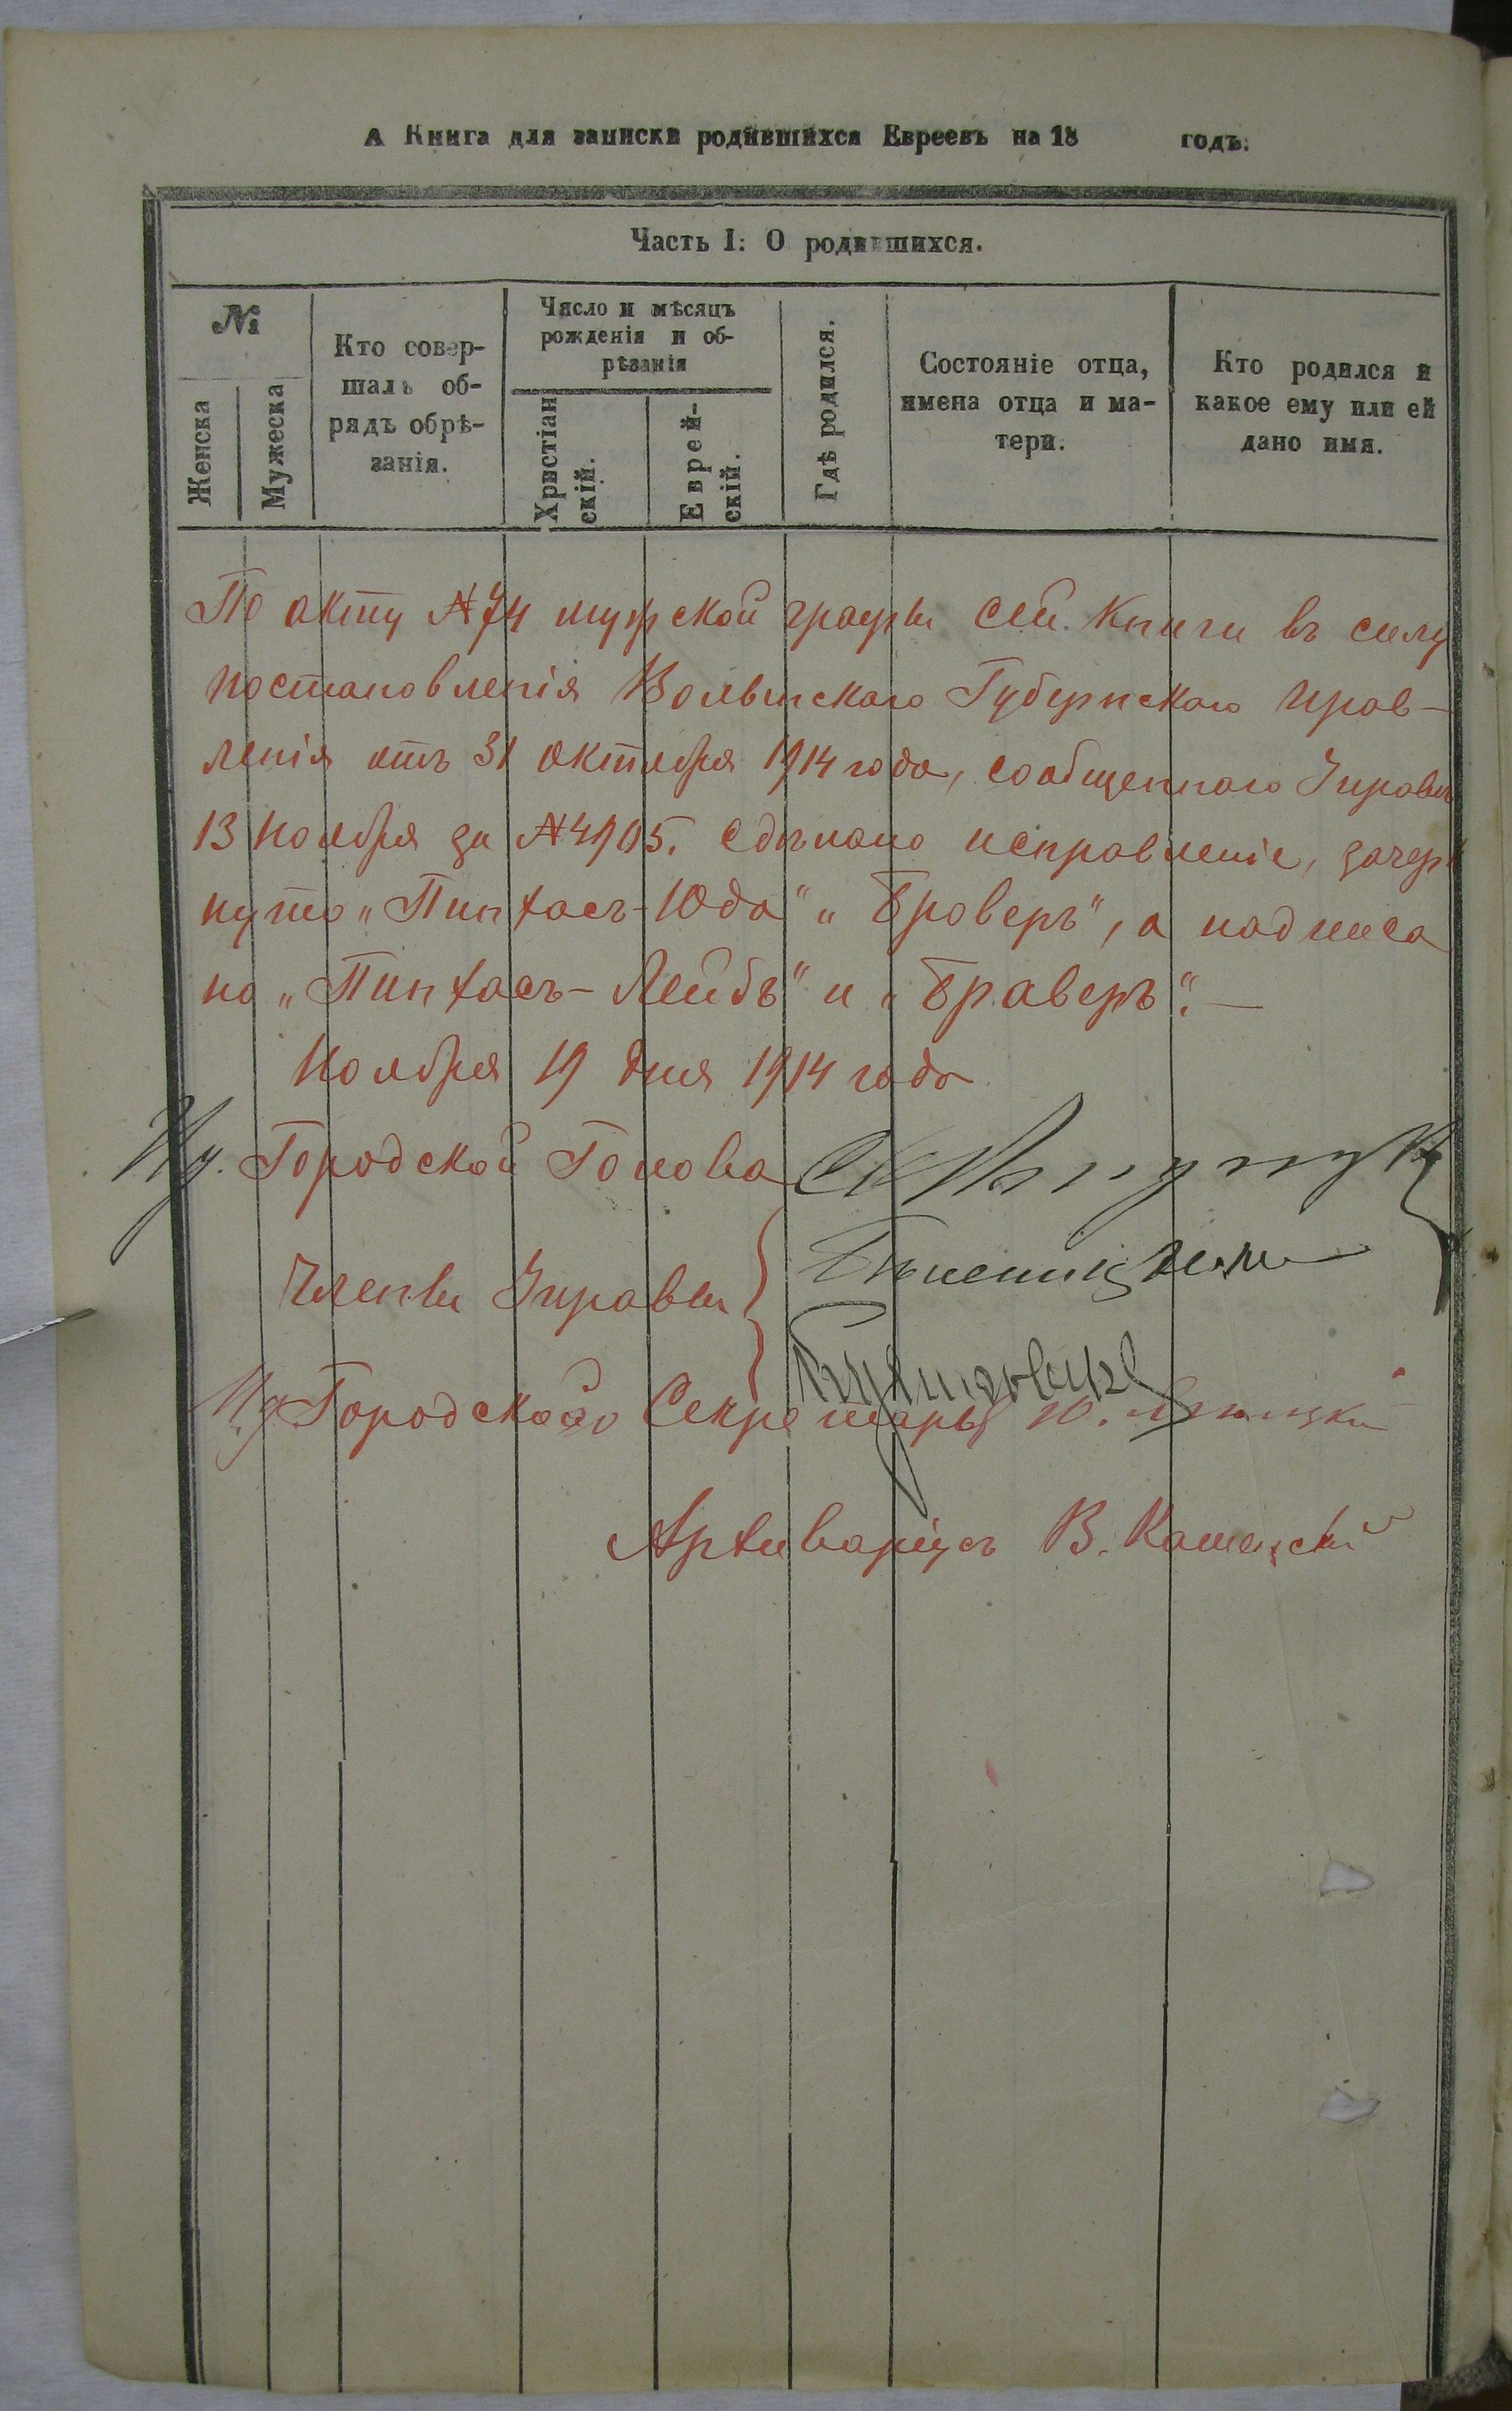 А Книга для записки родившихся Евреевъ на 18 годъ.
Часть I: О родившихся.
№
Женска
Мужеска
Кто совер-
шалъ об-
рядъ обрѣ-
занія.
Число и мѣсяцъ
рожденія и об-
рѣзанія
Христіан
скій.
Еврей-
скій.
Гдѣ родился.
Состояніе отца,
имена отца и ма-
тери.
Кто родился и
какое ему или ей
дано имя.
По акту №74 мужской графы сей книги въ силу
постановленія Волынскаго Губернскаго Прав-
ленія отъ 31 октября 1914 года, сообщеннаго Управѣ
13 ноября за №4905. сдѣлано исправленіе, зачерк
нуто „Пинхасъ-Юда" „Броверъ", а надписа
но „Пинхасъ-Лейбъ" и „Браверъ".—
Ноября 19 дня 1914 года
И.д. Городской Голова
Члены Управы
И.д. Городского Секретаря Ю.
Архиваріусъ В. Каменскій